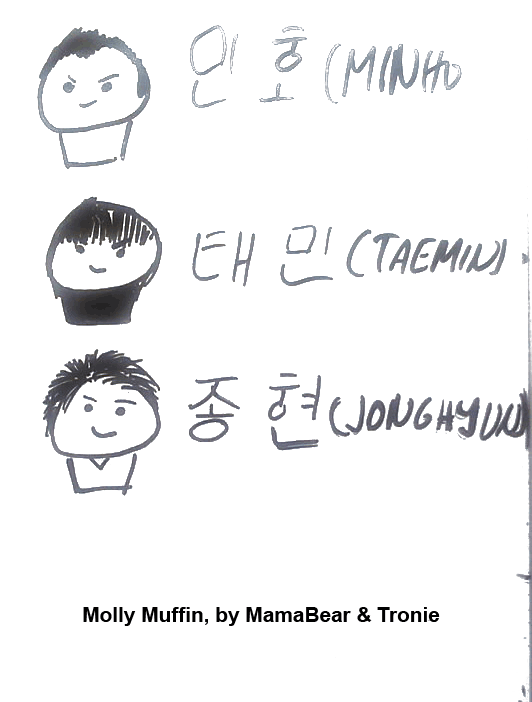 민호 (MINHO
태민 (TAEMIN)
종현 (JONGHYUN)
Molly Muffin, by MamaBear & Tronie